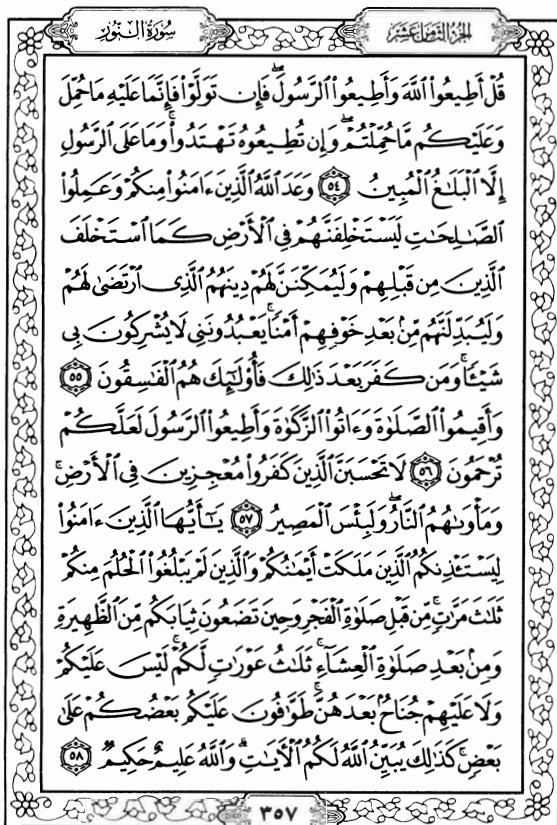 سُورَةُ النُّورِ
الجُزْءُ الثَّامِنَ عَشَرَ
قُلْ أَطِيعُوا۟ ٱللَّهَ وَأَطِيعُوا۟ ٱلرَّسُولَۖ فَإِن تَوَلَّوْا۟ فَإِنَّمَا عَلَيْهِ مَا حُمِّلَ
وَعَلَيْكُم مَّا حُمِّلْتُمْۖ وَإِن تُطِيعُوهُ تَهْتَدُوا۟ۚ وَمَا عَلَى ٱلرَّسُولِ
إِلَّا ٱلْبَلَٰغُ ٱلْمُبِينُ ٥٤ وَعَدَ ٱللَّهُ ٱلَّذِينَ ءَامَنُوا۟ مِنكُمْ وَعَمِلُوا۟
ٱلصَّٰلِحَٰتِ لَيَسْتَخْلِفَنَّهُمْ فِي ٱلْأَرْضِ كَمَا ٱسْتَخْلَفَ
ٱلَّذِينَ مِن قَبْلِهِمْ وَلَيُمَكِّنَنَّ لَهُمْ دِينَهُمُ ٱلَّذِي ٱرْتَضَىٰ لَهُمْ
وَلَيُبَدِّلَنَّهُم مِّنۢ بَعْدِ خَوْفِهِمْ أَمْنًاۚ يَعْبُدُونَنِي لَا يُشْرِكُونَ بِي
شَيْـًٔاۚ وَمَن كَفَرَ بَعْدَ ذَٰلِكَ فَأُو۟لَٰٓئِكَ هُمُ ٱلْفَٰسِقُونَ ٥٥
وَأَقِيمُوا۟ ٱلصَّلَوٰةَ وَءَاتُوا۟ ٱلزَّكَوٰةَ وَأَطِيعُوا۟ ٱلرَّسُولَ لَعَلَّكُمْ
تُرْحَمُونَ ٥٦ لَا تَحْسَبَنَّ ٱلَّذِينَ كَفَرُوا۟ مُعْجِزِينَ فِي ٱلْأَرْضِۚ
وَمَأْوَىٰهُمُ ٱلنَّارُۖ وَلَبِئْسَ ٱلْمَصِيرُ ٥٧ يَٰٓأَيُّهَا ٱلَّذِينَ ءَامَنُوا۟
لِيَسْتَـْٔذِنكُمُ ٱلَّذِينَ مَلَكَتْ أَيْمَٰنُكُمْ وَٱلَّذِينَ لَمْ يَبْلُغُوا۟ ٱلْحُلُمَ مِنكُمْ
ثَلَٰثَ مَرَّٰتٍۚ مِّن قَبْلِ صَلَوٰةِ ٱلْفَجْرِ وَحِينَ تَضَعُونَ ثِيَابَكُم مِّنَ ٱلظَّهِيرَةِ
وَمِنۢ بَعْدِ صَلَوٰةِ ٱلْعِشَآءِۚ ثَلَٰثُ عَوْرَٰتٍ لَّكُمْۚ لَيْسَ عَلَيْكُمْ
وَلَا عَلَيْهِمْ جُنَاحٌۢ بَعْدَهُنَّۚ طَوَّٰفُونَ عَلَيْكُم بَعْضُكُمْ عَلَىٰ
بَعْضٍۚ كَذَٰلِكَ يُبَيِّنُ ٱللَّهُ لَكُمُ ٱلْءَايَٰتِۗ وَٱللَّهُ عَلِيمٌ حَكِيمٌ ٥٨
٣٥٧